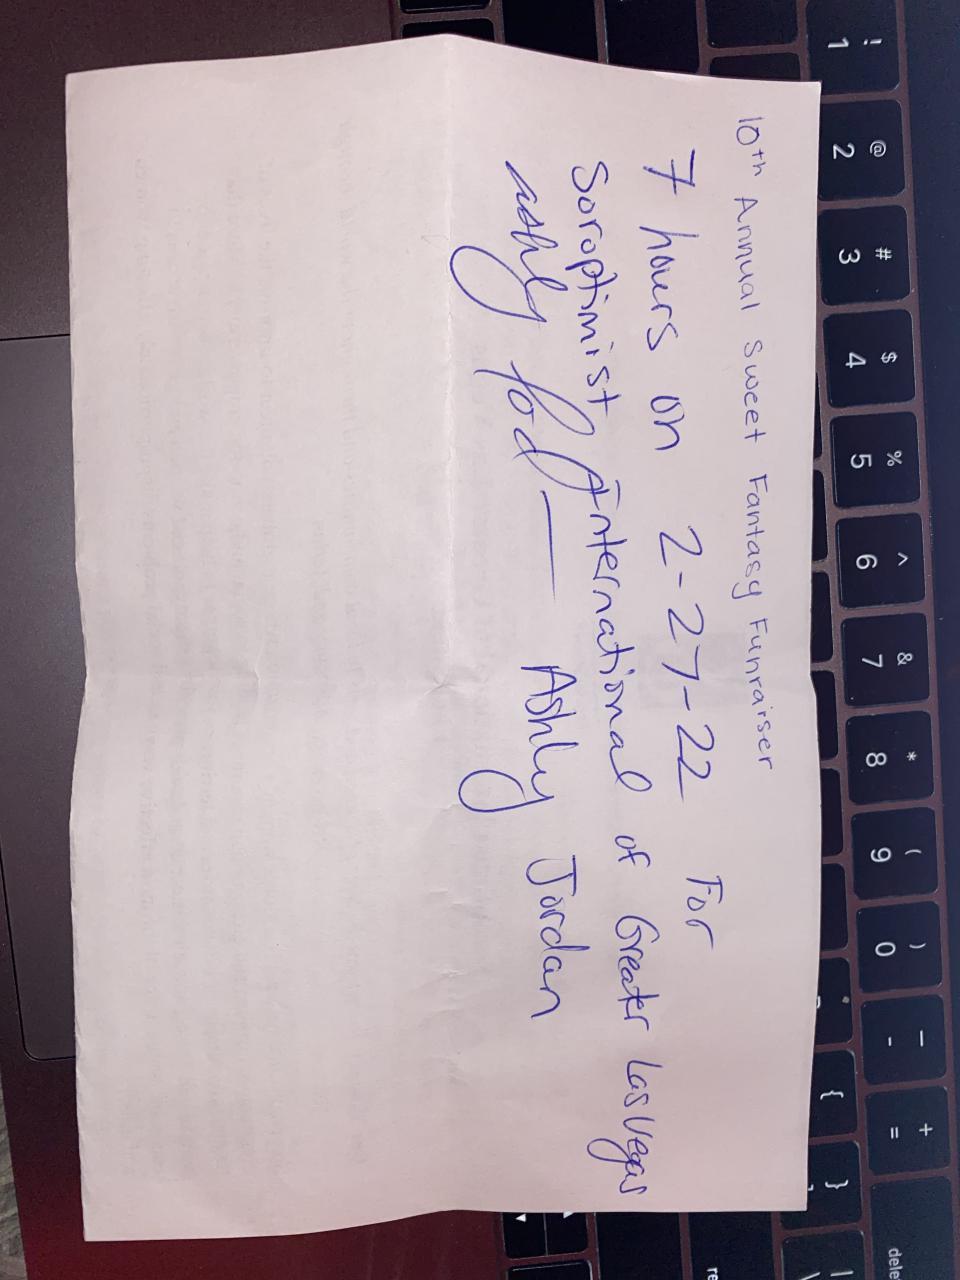 10th Annual Sweet Fantasy Funraiser
7 hours on 2-27-22 For
Soroptimist International of Greater Las Vegas
Ashly Jordan
! 1
@ 2
# 3
$ 4
% 5
^ 6
& 7
* 8
( 9
) 0
_ -
+ =
dele
{
}
re